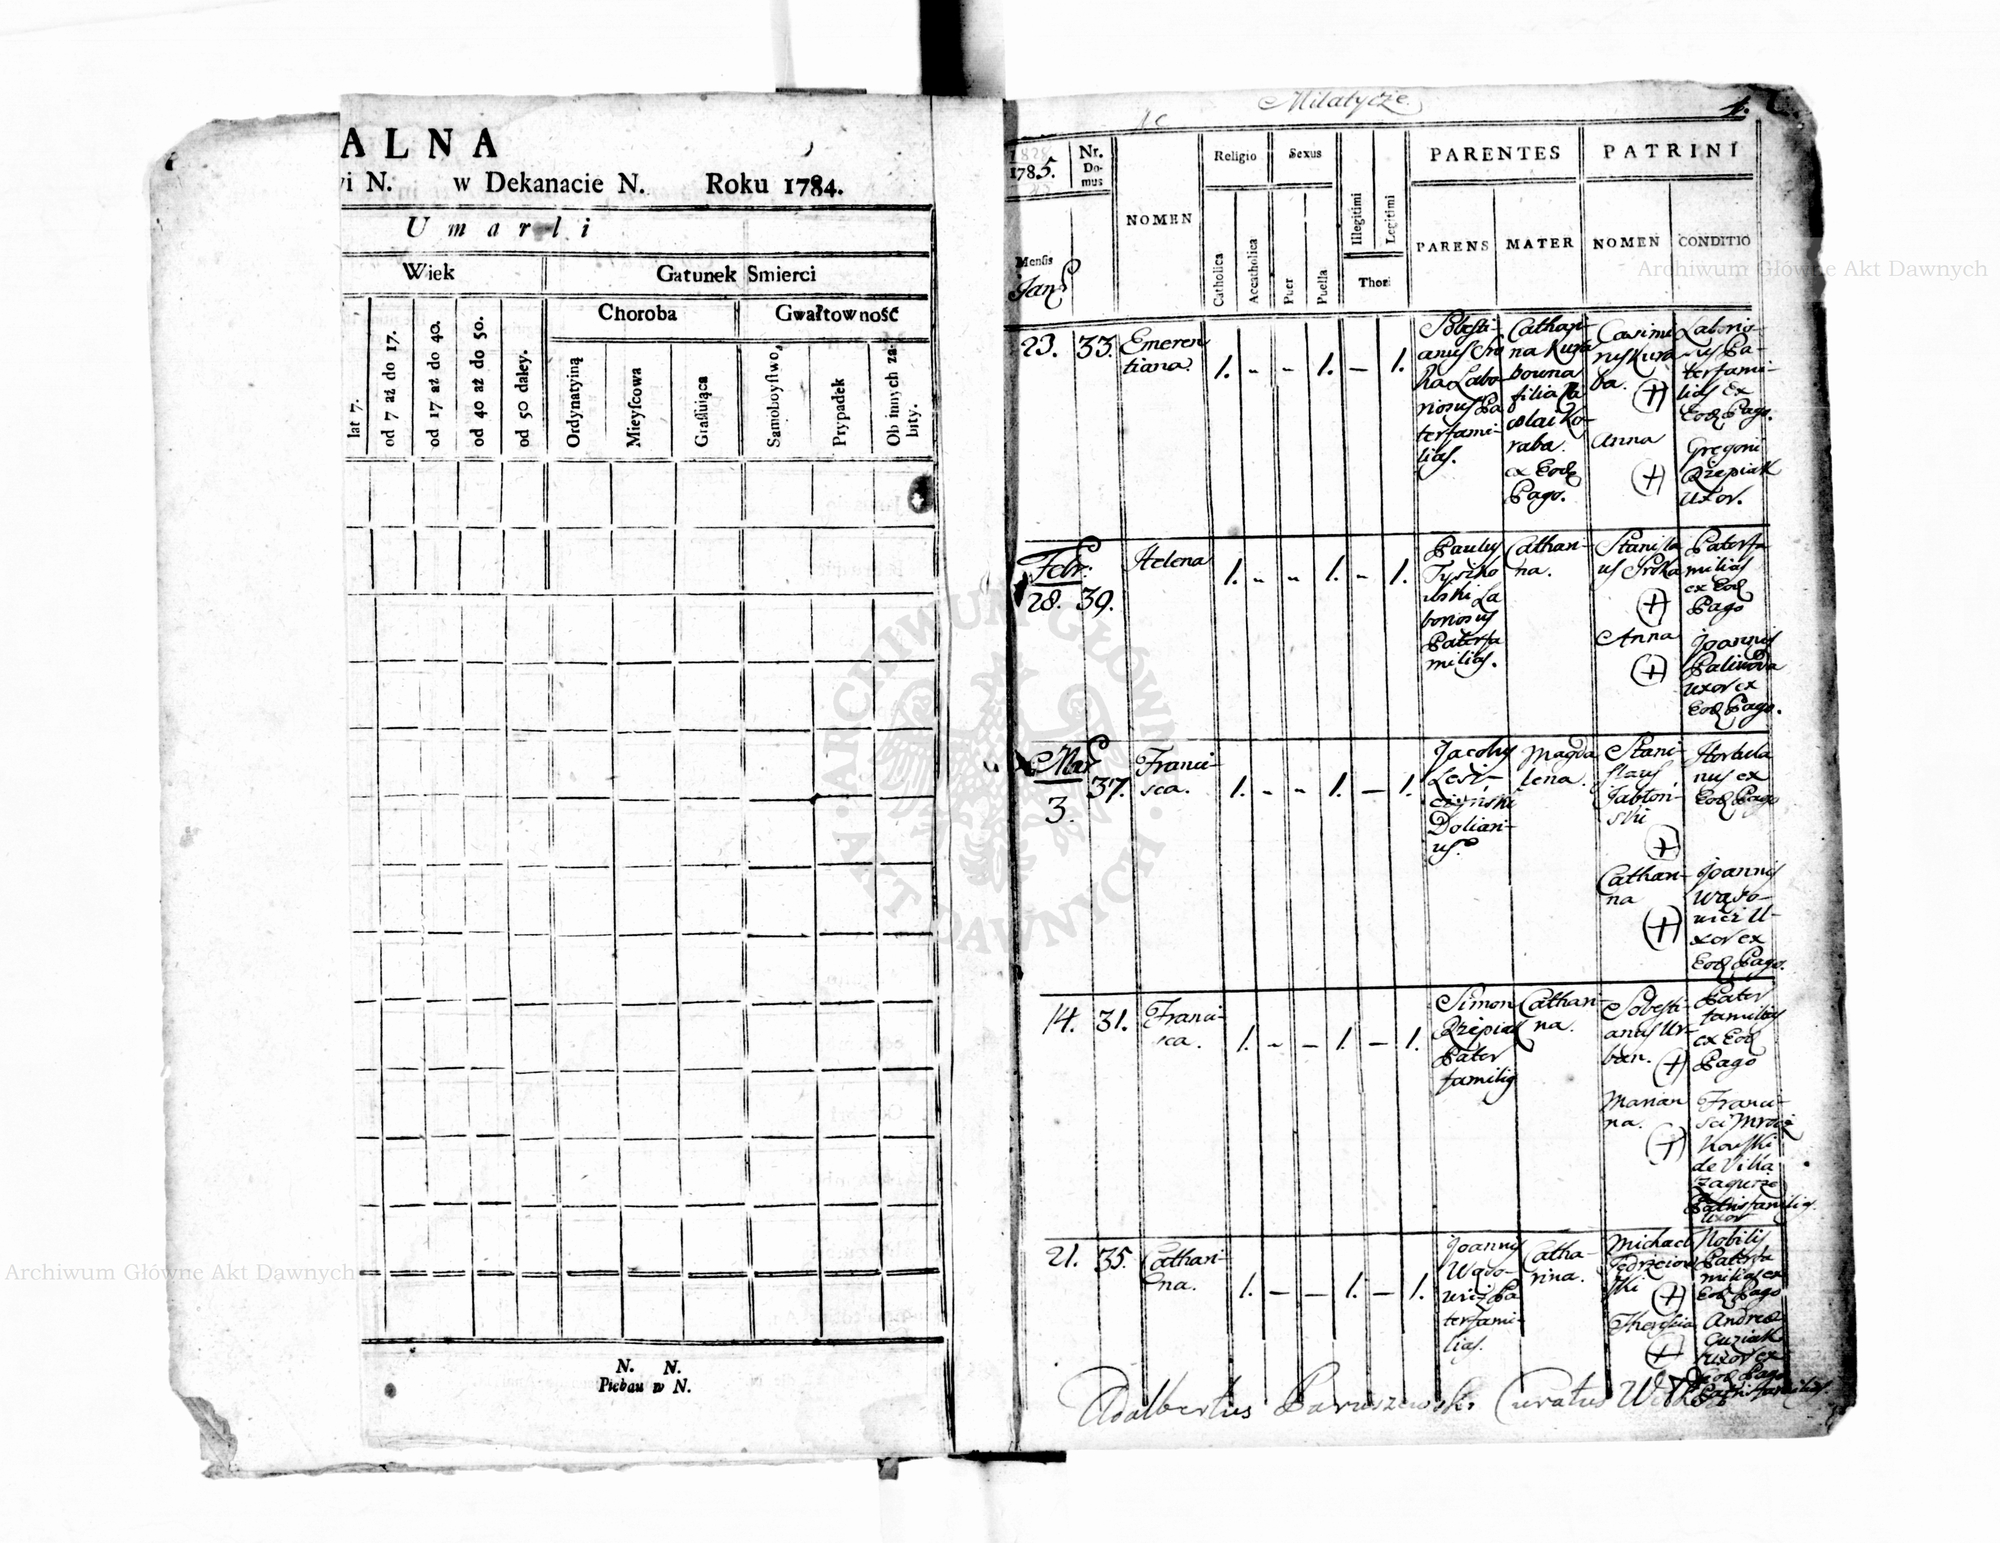 ALNA
vi N. w Dekanacie N. Roku 1784.
Umarli
Wiek
Gatunek Smierci
Choroba
Gwałtowność
lat 7.
od 7 aż do 17.
od 17 aż do 40.
od 40 aż do 50.
od 50 daley.
Ordynatyiną
Mieyscowa
Grassuiąca
Samoboystwo,
Prypadek
Ob innych za-
bity.
N. N.
Pleban w N.
Milatycze
1785.
Nr.
Do-
mus
NOMEN
Religio
Sexus
Illegitimi
Legitimi
Thori
PARENTES
PATRINI
Mensis
Jan
Catholica
Accatholica
Puer
Puella
PARENS
MATER
NOMEN
CONDITIO
23. 33. Emeren
tiana. 1. - - 1. - 1.
Sobesti-
anus Sro
ka Labo
riosus Pa
terfami-
lias.
Cathari-
na Kura
bowna
filia Pa
wlai Ko-
raba.
ex Eod
Pago.
Casimi
rus Kura
ba.
Anna
Laborio-
sus Pa-
terfami-
lias Ex
Eod Pago.
Gregorii
Rzepiak
Uxor.
Febr:
28. 39. Helena 1. - - 1. - 1.
Paulus
Tyszko
wski La
boriosus
Paterfa
milias.
Cathari-
na.
Stanisla
us Sroka
Anna
Paterfa
milias
ex Eod
Pago
Joannis
Uxor ex
Eod Pago.
Mar
3. 37. Franci-
sca. 1. - - 1. - 1.
Jacobus
Lesz-
czyński
Doliari-
us.
Magda
lena.
Stani-
slaus
Jabłoń-
ski
Cathari-
na
Hortula
nus ex
Eod Pago
Joannis
Wąso-
wicz U-
xor ex
Eod Pago.
14. 31. Franci-
sca. 1. - - 1. - 1.
Simon
Rzepiak
Pater
familias
Cathari-
na.
Sobesti-
anus Ur-
ban.
Marian
na.
Pater
familias
ex Eod
Pago
Franci-
sci Mrocz
kowski
de Villa
Zagurze
Patrisfamilias
Uxor
21. 35. Cathari-
na. 1. - - 1. - 1.
Joannes
Wąso-
wicz Pa
terfami-
lias.
Catha-
rina.
Michael
Jędrzeiow
ski
Theresia
Nobilis
Paterfa
milias ex
Eod Pago
Andreae
Guziak
Uxor ex
Eod Pago
Patrisfamilias.
Adalbertus Paruszewski Curatus
Archiwum Główne Akt Dawnych
Archiwum Główne Akt Dawnych
ARCHIWUM GŁÓWNE
AKT DAWNYCH